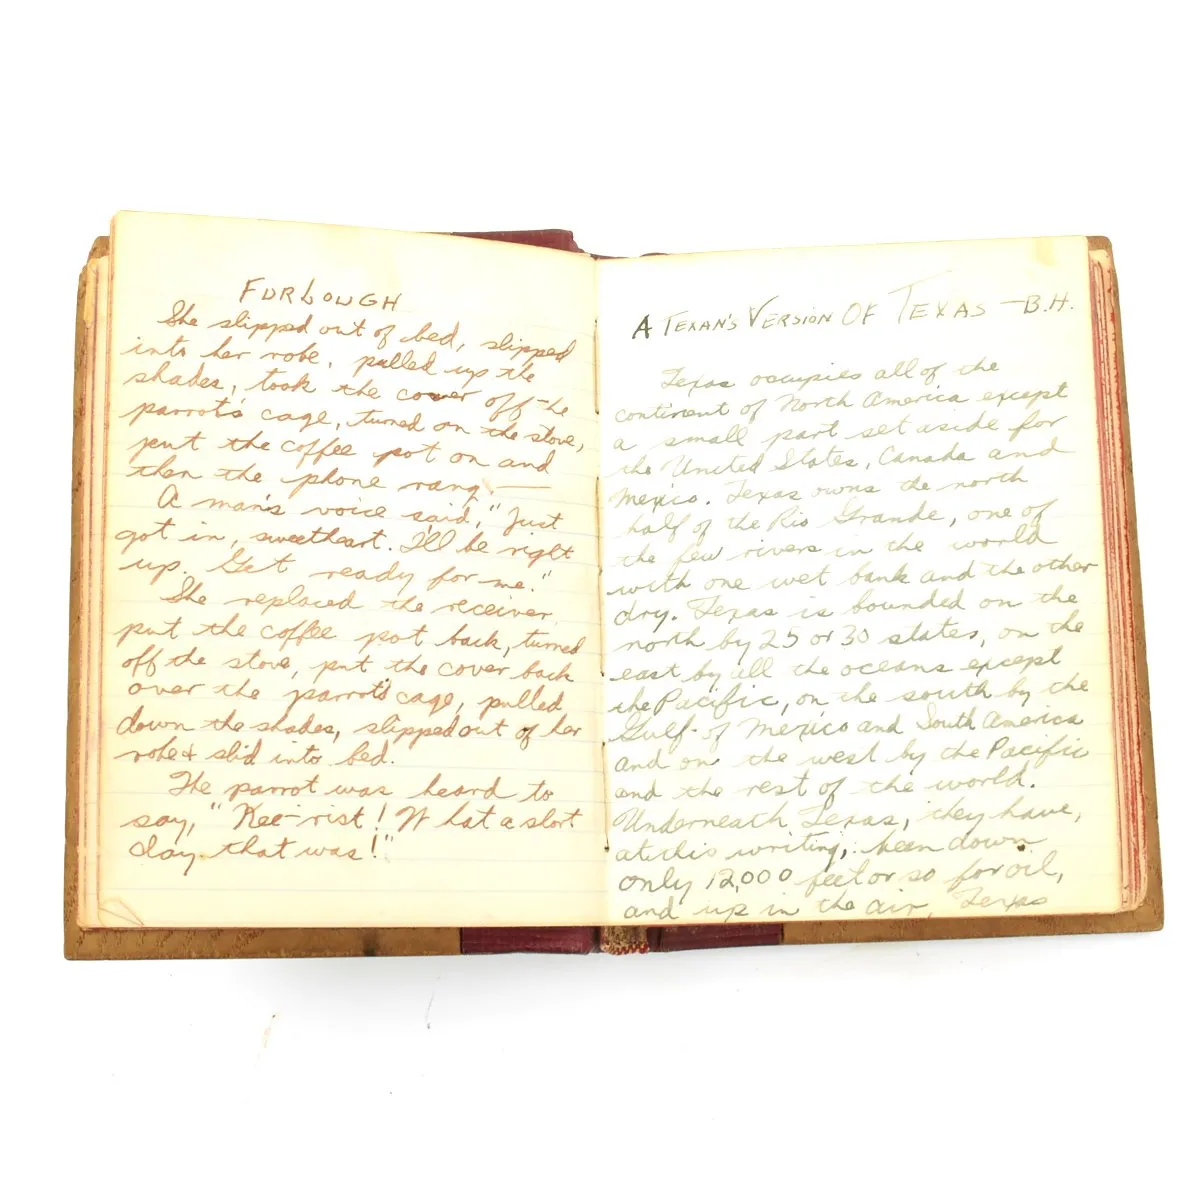 FURLOUGH
She slipped out of bed, slipped
into her robe, pulled up the
shades, took the cover off the
parrot's cage, turned on the stove,
put the coffee pot on and
then the phone rang. —
A man's voice said, "Just
got in, sweetheart. I'll be right
up. Get ready for me."
She replaced the receiver,
put the coffee pot back, turned
off the stove, put the cover back
over the parrot's cage, pulled
down the shades, slipped out of her
robe & slid into bed.
The parrot was heard to
say, "Kee-rist! What a short
day that was!"
A TEXAN'S VERSION OF TEXAS — B.H.
Texas occupies all of the
continent of North America except
a small part set aside for
the United States, Canada and
Mexico. Texas owns the north
half of the Rio Grande, one of
the few rivers in the world
with one wet bank and the other
dry. Texas is bounded on the
north by 25 or 30 states, on the
east by all the oceans except
the Pacific, on the south by the
Gulf of Mexico and South America
and on the west by the Pacific
and the rest of the world.
Underneath Texas, they have,
at this writing, been down
only 12,000 feet or so for oil,
and up in the air, Texas